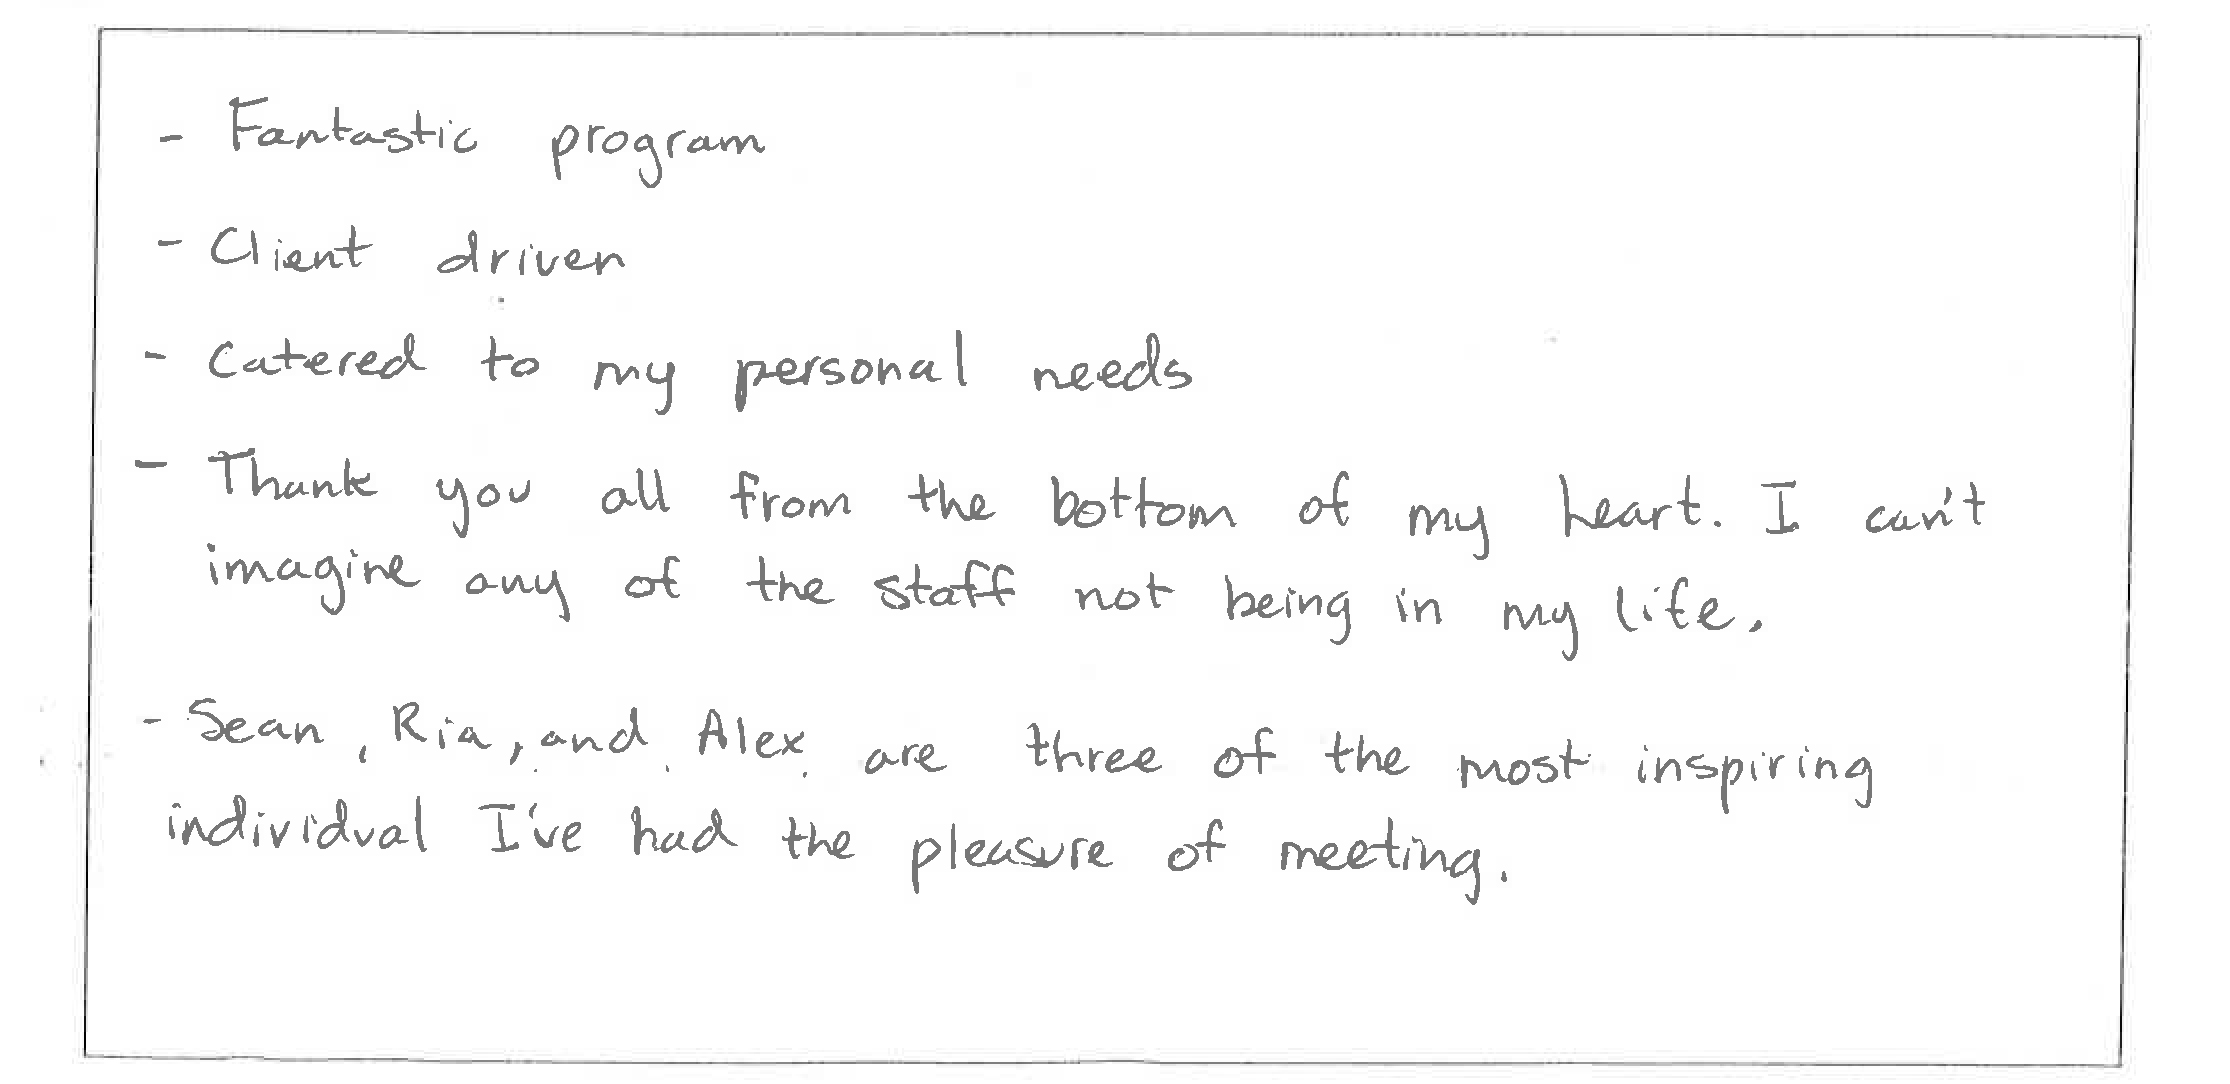 - Fantastic program
- Client driven
- Catered to my personal needs
- Thank you all from the bottom of my heart. I can't
imagine any of the staff not being in my life.
- Sean, Ria, and Alex are three of the most inspiring
individual I've had the pleasure of meeting.